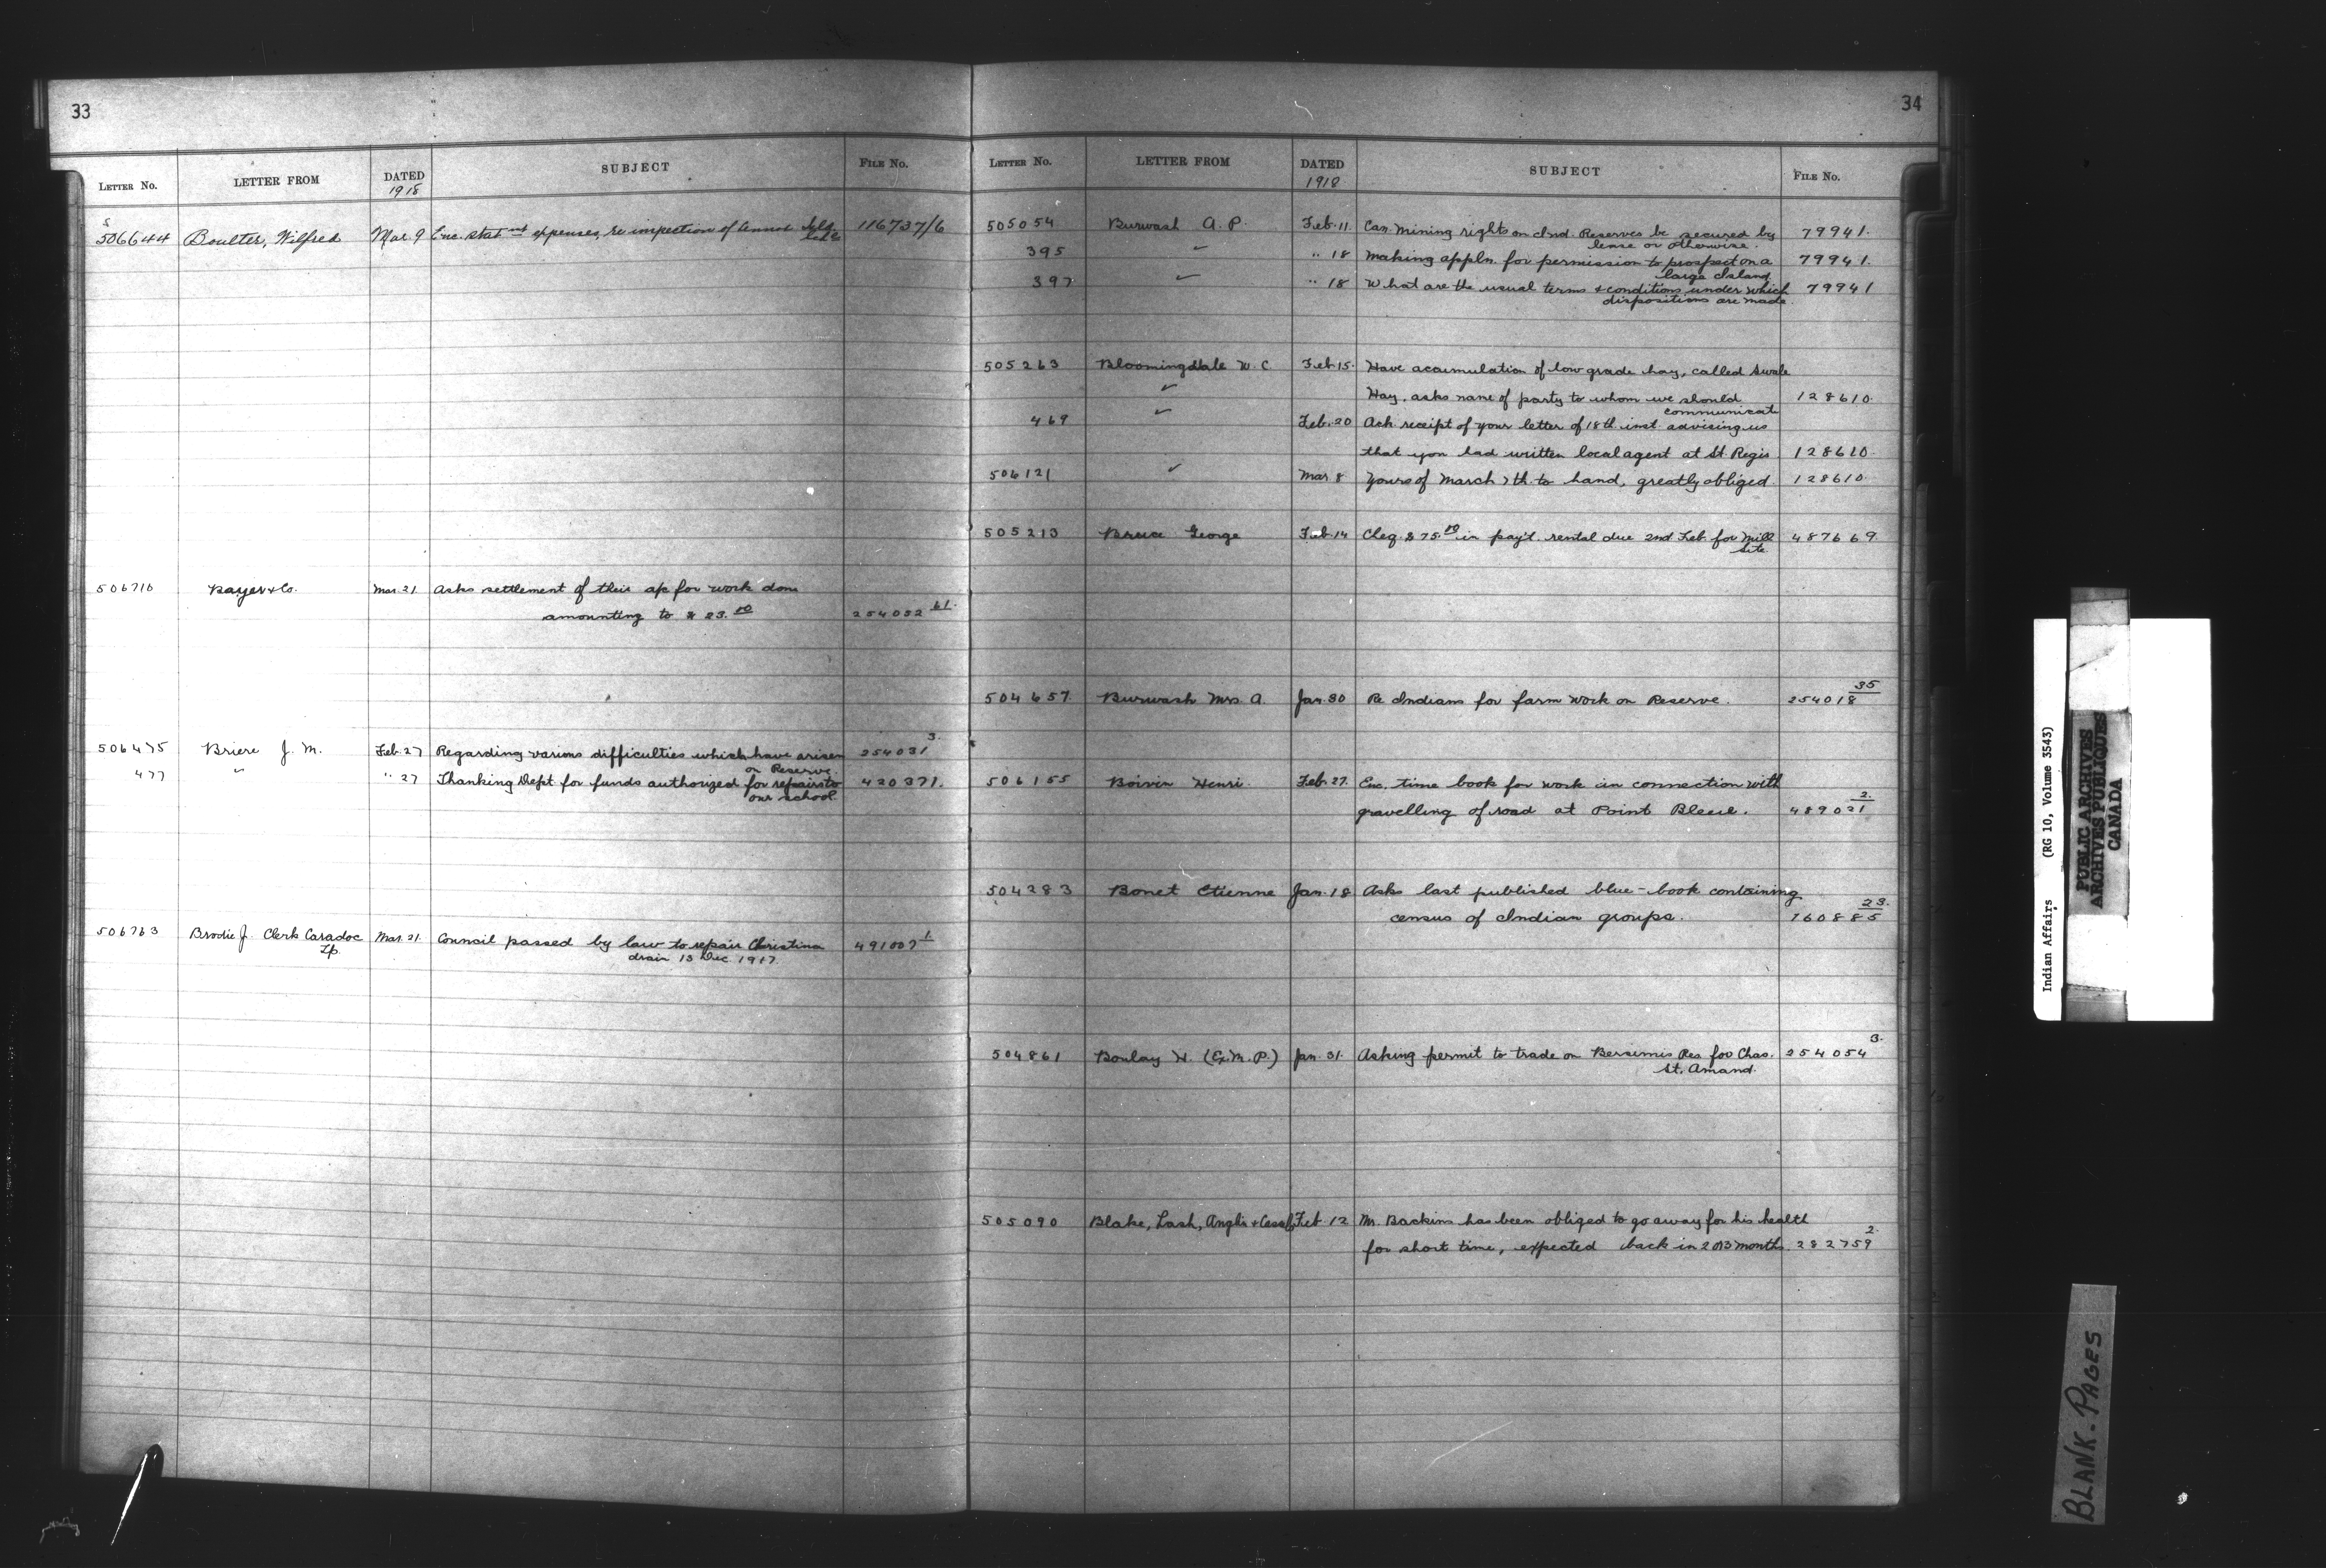 33
LETTER No. LETTER FROM DATED 1918 SUBJECT FILE No.
S
506644 Boulter, Wilfred Mar. 9 Enc. statmt expenses, re inspection of 116737/6
506716 Bayer & Co. Mar. 21 Asks settlement of their a/c for work done
amounting to $23.00 254052 61.
506475 Briere J. M. Feb. 27 Regarding various difficulties which have arisen 254031 3.
on Reserve.
477 " " 27 Thanking Dept for funds authorized for repairs to 420371.
our school.
506763 Brodie J. Clerk Caradoc Mar. 21. Council passed by law to repair Christina 491007 1
Tp. drain 13 Dec. 1917.
34
LETTER No. LETTER FROM DATED 1918 SUBJECT FILE No.
505054 Burwash A. P. Feb. 11. Can mining rights on Ind. Reserves be secured by 79941.
lease or otherwise.
395 " " 18 Making appln. for permission to prospect on a 79941.
large Island.
397 " " 18 What are the usual terms & conditions under which 79941
dispositions are made.
505263 Bloomingdale W. C. Feb. 15. Have accumulation of low grade hay, called Swale
" Hay. asks name of party to whom we should 128610.
communicate
469 " Feb. 20 Ack. receipt of your letter of 18th inst. advising us
that you had written local agent at St. Regis 128610.
506121 " Mar 8 Yours of March 7th. to hand, greatly obliged. 128610.
505213 Bruce George Feb. 14 Cheq. $75.00 in pay't. rental due 2nd Feb. for Mill 487669.
Site.
504657 Burwash Mrs. A. Jan. 30 Re Indians for farm work on Reserve. 254018 35
506155 Boivin Henri. Feb. 27. Enc. time book for work in connection with
gravelling of road at Point Bleue. 489021 2.
504283 Bonet Etienne Jan. 18 Asks last published blue-book containing
census of Indian groups. 160885 23.
504861 Boulay H. (Ex. M. P.) Jan. 31. Asking permit to trade on Bersimis Res. for Chas. 254054 3.
St. Amand.
505090 Blake, Lash, Anglin & Cassels Feb. 12 Mr. Backins has been obliged to go away for his health
for short time, expected back in 2 or 3 months. 282759 2.
Indian Affairs (RG 10, Volume 3543)
PUBLIC ARCHIVES
ARCHIVES PUBLIQUES
CANADA
BLANK. PAGES